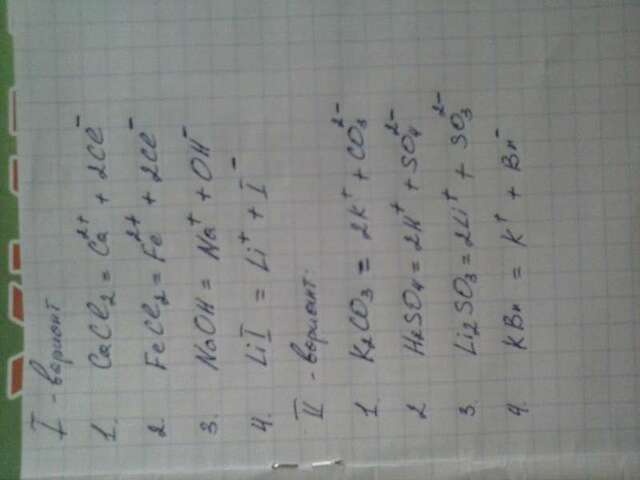 I - вариант
1. CaCl₂ = Ca²⁺ + 2Cl⁻
2. FeCl₂ = Fe²⁺ + 2Cl⁻
3. NaOH = Na⁺ + OH⁻
4. LiI = Li⁺ + I⁻
II - вариант.
1 K₂CO₃ = 2K⁺ + CO₃²⁻
2 H₂SO₄ = 2H⁺ + SO₄²⁻
3. Li₂SO₃ = 2Li⁺ + SO₃²⁻
4. KBr = K⁺ + Br⁻